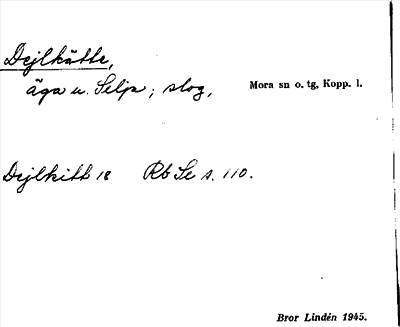 Dejlkätte,
äga u. Selja; slog, Mora sn o. tg, Kopp. l.
Dejlkitt 18 Rb Se s. 110.
Bror Lindén 1945.